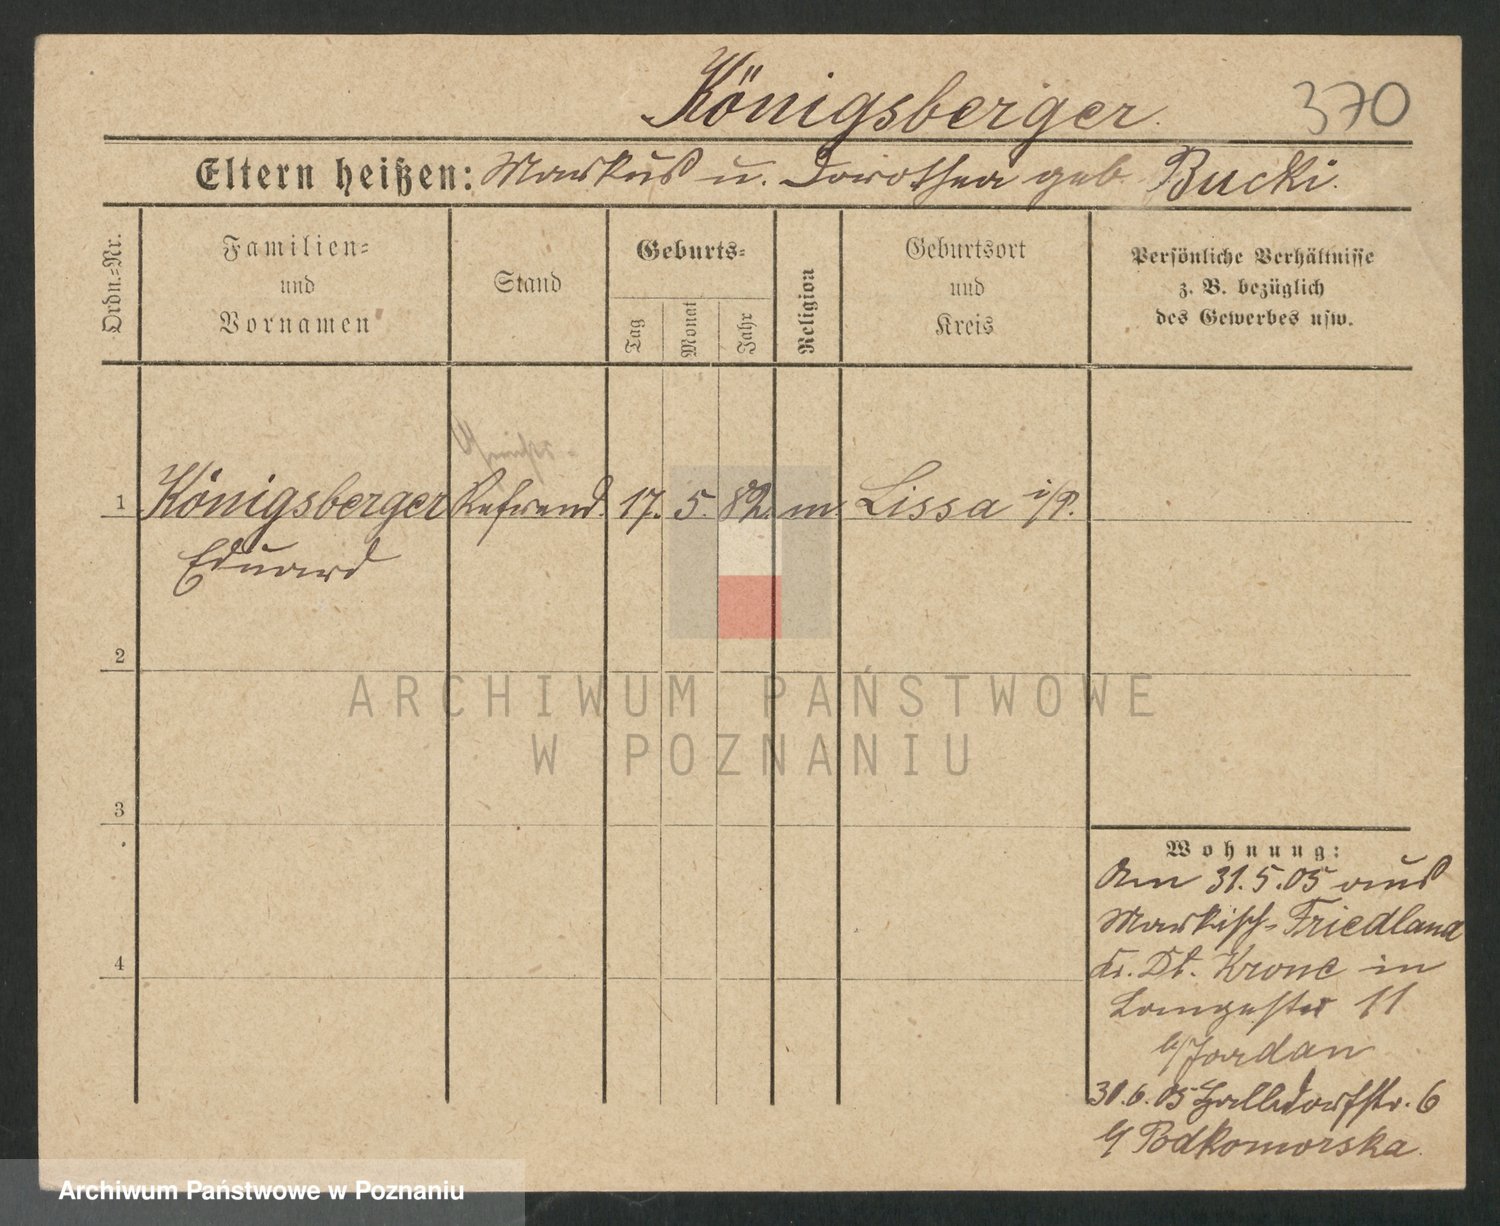 Königsberger.
370
Eltern heißen: Markus u. Dorothea geb. Bucki.
Ordn.=Nr.
Familien=
und
Vornamen
Stand
Geburts=
Tag
Monat
Jahr
Religion
Geburtsort
und
Kreis
Persönliche Verhältnisse
z. B. bezüglich
des Gewerbes usw.
1 Königsberger Refrend. 17. 5. 82. m Lissa i/P.
Eduard
2
3
4
ARCHIWUM PAŃSTWOWE
W POZNANIU
Wohnung:
Am 31.5.05 aus
Markisch-Friedland
Kr. Dt. Krone in
Langestr 11
b/Jordan
30.6.05 Halldorfstr. 6
b/ Podkomorska.
Archiwum Państwowe w Poznaniu